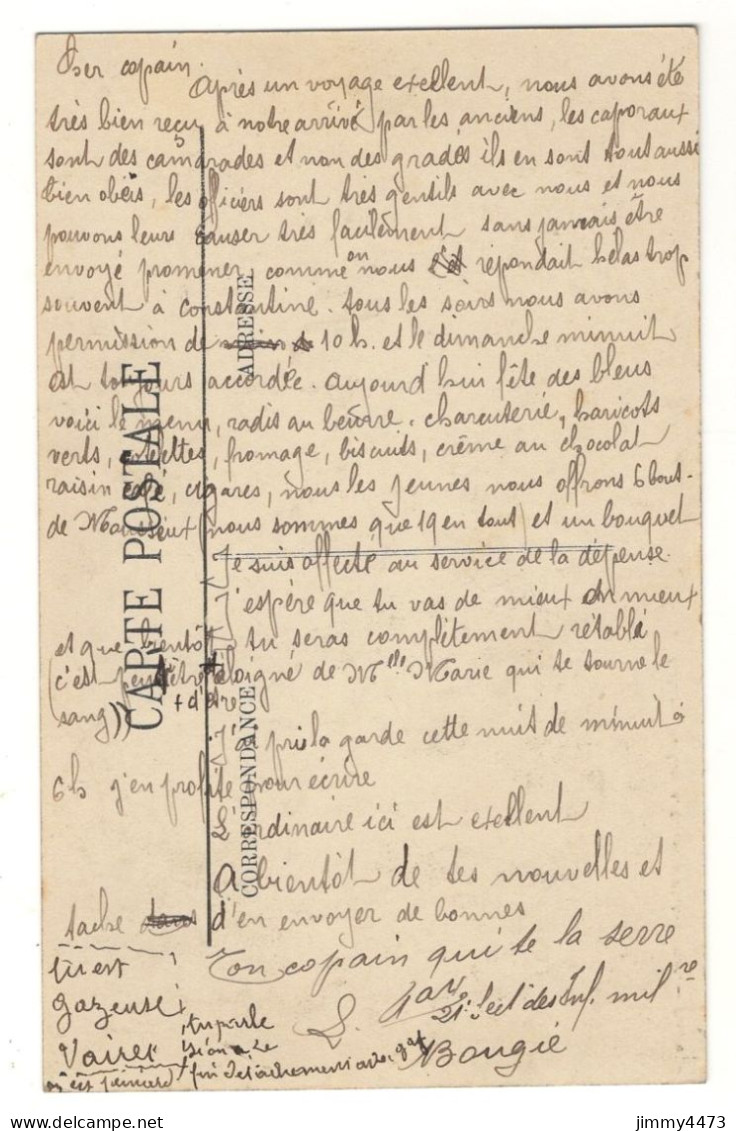 Cher copain.
Après un voyage exellent, nous avons été
très bien reçu à notre arrivé par les anciens, les caporaux
sont des camarades et non des gradés ils en sont tout aussi
bien obéis, les officiers sont très gentils avec nous et nous
pouvons leurs causer très facilement sans jamais être
envoyé promener comme on nous répondait hélas trop
souvent à constantine. tous les soirs nous avons
permission de 10 h. et le dimanche minuit
est toujours accordée. aujourd'hui fête des bleus
voici le menu, radis au beurre. charcuterie, haricots
verts, côtelettes, fromage, biscuits, crème au chocolat
raisin café, cigares, nous les jeunes nous offrons 6 bout-
de Mousseux (nous sommes que 19 en tout) et un bouquet
Je suis affecté au service de la dépense.
J'espère que tu vas de mieux en mieux
et que bientôt tu seras complètement rétabli
(c'est peut être éloigné de Mlle Marie qui te tourne le
sang)) + d'être
J'ai pris la garde cette nuit de minuit à
6 h j'en profite pour écrire
L'ordinaire ici est exellent
A bientôt de tes nouvelles et
tache d'en envoyer de bonnes
Ton copain qui te la serre
L.
21e Sect des Inf. milre
Bougie
gazeuse
détachement
CARTE POSTALE
CORRESPONDANCE
ADRESSE
jimmy4473